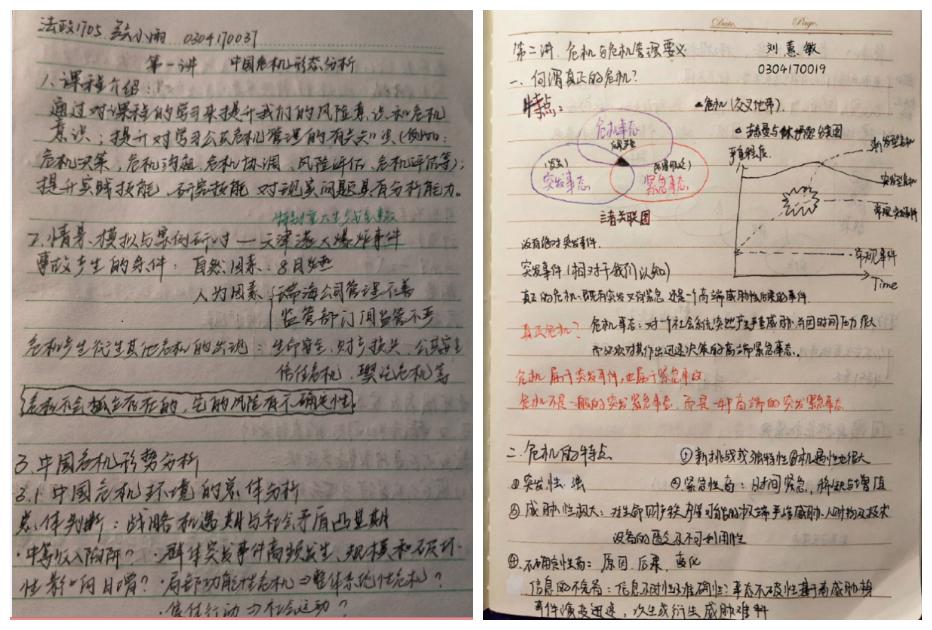 法政1705 0304170037
第一讲 中国危机形态分析
1.课程介绍:
通过对课程的学习来提升我们的风险意识和危机
意识；提升对学习公共危机管理的相关
危机决策,危机沟通,危机协调、风险评估、危机评估等);
提升实践技能、研究技能、对现实问题具有分析能力.
2.情景、模拟与案例研讨—天津港大爆炸事件
事故产生的条件: 自然因素: 8月
人为因素 瑞海公司管理不善
监管部门监管不严
危机产生衍生其他危机的出现: 生命安全、财产损失、公共安全
信任危机、 危机等
危机不会孤立存在的,它的风险有不确定性.
3.中国危机形势分析
3.1 中国危机环境的总体分析
总体判断: 战略机遇期与社会矛盾凸显期
·中等收入陷阱? ·群体突发事件高频发生、规模和破坏
性影响日增? ·局部功能性危机⇒整体系统性危机?
·集体行动⇒社会运动?
Date. Page.
第二讲.危机与危机管理要义 刘蕙敏
0304170019
一.何谓真正的危机?
特点: 危机(交叉地带).
危机事态
突发事态
紧急事态
三者关联图
事件
Time
没有绝对突发事件.
突发事件(相对于我们认知)
真正的危机:既有突发又有紧急还是一个高端威胁性后果的事件.
真正危机? 危机事态:对一个社会系统实地产生严重威胁,并因时间压力很大
而必须对其作出迅速决策的高端紧急事态.
危机属于突发事件,也属于紧急事件.
危机不是一般的突发紧急事态,而是一种高端的突发紧急事态
二.危机的特点
⑤新挑战或独特性 机遇性也很大
①突发性强
②紧急性高:时间紧急,
③威胁性极大:对生命财产秩序等可能的极端严峻威胁、人财物及技术
设备的匮乏及不可利用性
④不确定性高: 原因,后果,变化
信息的不完备:信息及时性及准确性;
事件演变迅速,次生或衍生威胁难料